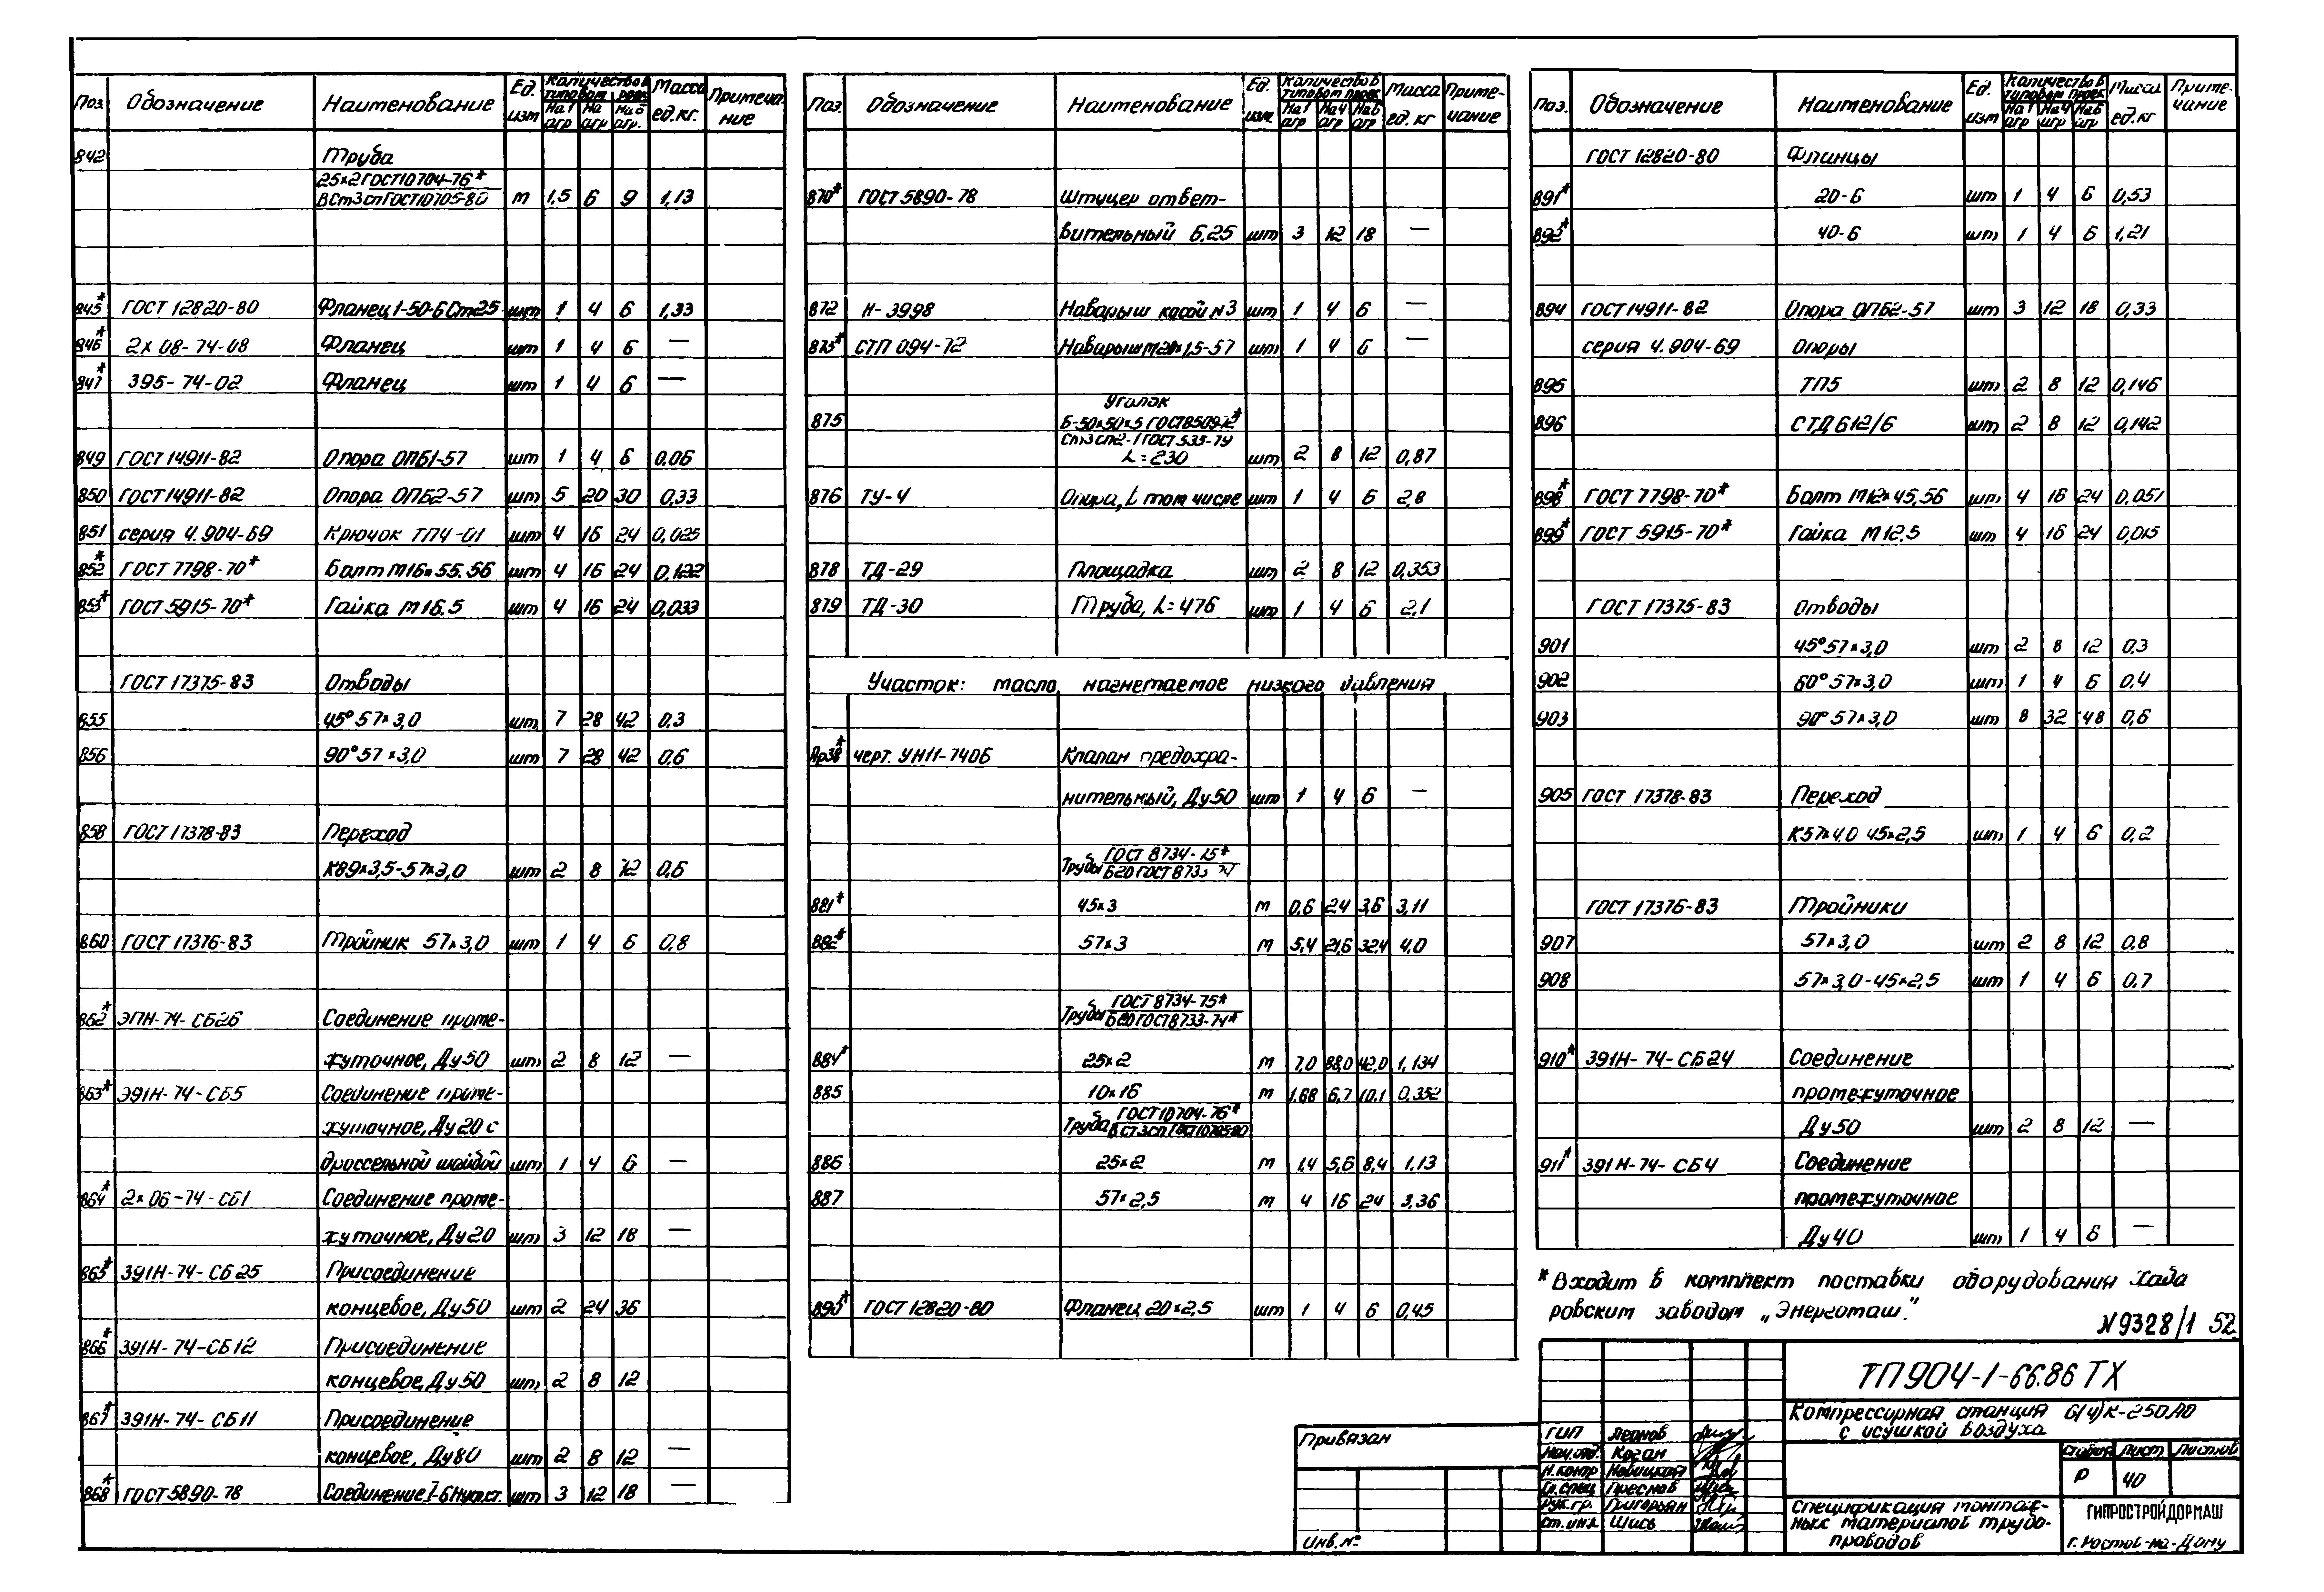 Поз. Обозначение Наименование Ед. изм Количество в типовом проек. На 1 агр На агр На 6 агр. Масса ед.кг. Примечание
842 Труба
25×2 ГОСТ10704-76*
ВСт3сп ГОСТ10705-80 м 1,5 6 9 1,13
845* ГОСТ 12820-80 Фланец 1-50-6 Ст25 шт 1 4 6 1,33
846* 2х 08-74-08 Фланец шт 1 4 6 —
847* 395-74-02 Фланец шт 1 4 6 —
849 ГОСТ 14911-82 Опора ОПБ1-57 шт 1 4 6 0,06
850 ГОСТ 14911-82 Опора ОПБ2-57 шт 5 20 30 0,33
851 серия 4.904-69 Крючок ТП4-01 шт 4 16 24 0,025
852* ГОСТ 7798-70* Болт М16×55.56 шт 4 16 24 0,122
853* ГОСТ 5915-70* Гайка М16.5 шт 4 16 24 0,033
ГОСТ 17375-83 Отводы
855 45° 57×3,0 шт 7 28 42 0,3
856 90° 57×3,0 шт 7 28 42 0,6
858 ГОСТ 17378-83 Переход
К89×3,5-57×3,0 шт 2 8 12 0,6
860 ГОСТ 17376-83 Тройник 57×3,0 шт 1 4 6 0,8
862* ЭПН-74-СБ26 Соединение проме-
жуточное, Ду50 шт 2 8 12 —
863* Э91Н-74-СБ5 Соединение проме-
жуточное, Ду20 с
дроссельной шайбой шт 1 4 6 —
864* 2×06-74-СБ1 Соединение проме-
жуточное, Ду20 шт 3 12 18 —
865* 391Н-74-СБ25 Присоединение
концевое, Ду50 шт 2 24 36
866* 391Н-74-СБ12 Присоединение
концевое, Ду50 шт 2 8 12
867* 391Н-74-СБ11 Присоединение
концевое, Ду80 шт 2 8 12 —
868* ГОСТ 5890-78 Соединение шт 3 12 18 —
Поз. Обозначение Наименование Ед. изм. Количество в типовом проек. На 1 агр На 4 агр На 6 агр Масса ед. кг Примечание
870* ГОСТ 5890-78 Штуцер ответ-
вительный Б.25 шт 3 12 18 —
872 Н-3998 Наварыш косой №3 шт 1 4 6 —
873* СТП 094-72 Наварыш М20×1,5-57 шт 1 4 6 —
875 Уголок
Б-50×50×5 ГОСТ8509-72*
Ст3сп2-1 ГОСТ 535-79
L=230 шт 2 8 12 0,87
876 ТУ-4 Опора, в том числе шт 1 4 6 2,8
878 ТД-29 Площадка шт 2 8 12 0,353
879 ТД-30 Труба, L=476 шт 1 4 6 2,1
Участок: масло нагнетаемое низкого давления
Пр38* черт. УН11-7406 Клапан предохра-
нительный, Ду50 шт 1 4 6 —
Трубы ГОСТ 8734-75*
Б20 ГОСТ 8733-74
881* 45×3 м 0,6 2,4 3,6 3,11
882* 57×3 м 5,4 21,6 32,4 4,0
Трубы ГОСТ 8734-75*
Б20 ГОСТ 8733-74*
884* 25×2 м 7,0 88,0 42,0 1,134
885 10×16 м 1,68 6,7 10,1 0,352
Труба ГОСТ 10704-76*
ВСт.3сп ГОСТ10705-80
886 25×2 м 1,4 5,6 8,4 1,13
887 57×2,5 м 4 16 24 3,36
890* ГОСТ 12820-80 Фланец 20×2,5 шт 1 4 6 0,45
Поз. Обозначение Наименование Ед. изм Количество в типовом проек. На 1 агр На 4 агр На 6 агр Масса ед.кг Примечание
ГОСТ 12820-80 Фланцы
891* 20-6 шт 1 4 6 0,53
892* 40-6 шт 1 4 6 1,21
894 ГОСТ 14911-82 Опора ОПБ2-57 шт 3 12 18 0,33
серия 4.904-69 Опоры
895 ТП5 шт 2 8 12 0,146
896 СТД 612/6 шт 2 8 12 0,142
898* ГОСТ 7798-70* Болт М12×45,56 шт 4 16 24 0,051
899* ГОСТ 5915-70* Гайка М12,5 шт 4 16 24 0,015
ГОСТ 17375-83 Отводы
901 45° 57×3,0 шт 2 8 12 0,3
902 60° 57×3,0 шт 1 4 6 0,4
903 90° 57×3,0 шт 8 32 48 0,6
905 ГОСТ 17378-83 Переход
К57×4,0 45×2,5 шт 1 4 6 0,2
ГОСТ 17376-83 Тройники
907 57×3,0 шт 2 8 12 0,8
908 57×3,0-45×2,5 шт 1 4 6 0,7
910* 391Н-74-СБ24 Соединение
промежуточное
Ду50 шт 2 8 12 —
911* 391Н-74-СБ4 Соединение
промежуточное
Ду40 шт 1 4 6 —
* Входит в комплект поставки оборудования Хаба
ровским заводом „Энергомаш".
N9328/1 52
ТП904-1-66.86 ТХ
Компрессорная станция 6(4)К-250АО
с осушкой воздуха
Привязан
Инв.№
ГИП Леонов
Нач.отд. Коган
Н.контр Новицкая
Гл.спец Преснов
Рук.гр. Григорьян
Ст.инж Шись
Стадия Лист Листов
Р 40
Спецификация монтаж-
ных материалов трубо-
проводов
ГИПРОСТРОЙДОРМАШ
г. Ростов-на-Дону